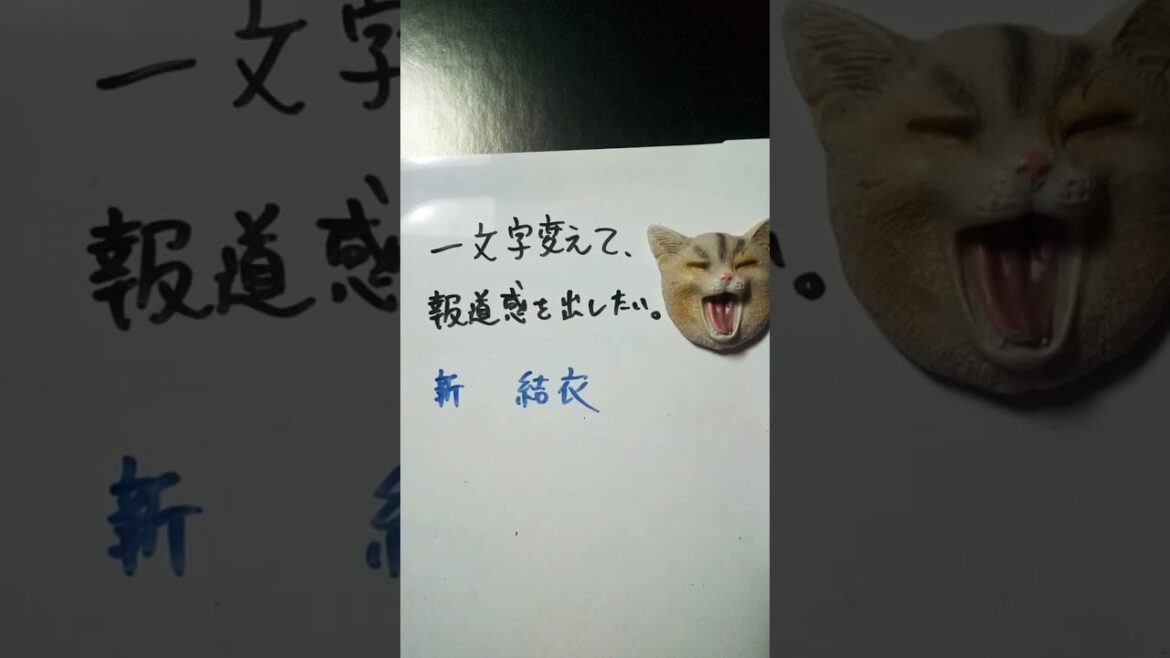 一文字変えて、
報道惑を出したい。
新 結衣